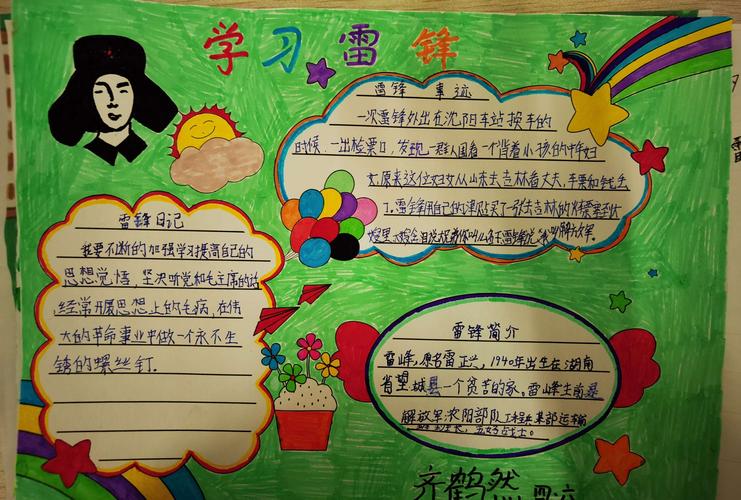 学习雷锋
雷锋事迹
一次雷锋外出在沈阳车站换车的
时候,一出检票口,发现一群人围着一个背着小孩的中年妇
女,原来这位妇女从山东去吉林看丈夫,车票和钱丢
了。雷锋用自己的津贴买了一张去吉林的火车票塞到大
嫂手里,大嫂含着
雷锋日记
我要不断的加强学习提高自己的
思想觉悟,坚决听党和毛主席的话
经常开展思想上的毛病,在伟
大的革命事业中做一个永不生
锈的螺丝钉.
雷锋简介
雷峰,原名雷正兴,1940年出生在湖南
省望城县一个贫苦的家,雷峰生前是
解放军沈阳部队工程兵某部运输
班班长,五好战士。
齐鹤然
四.六